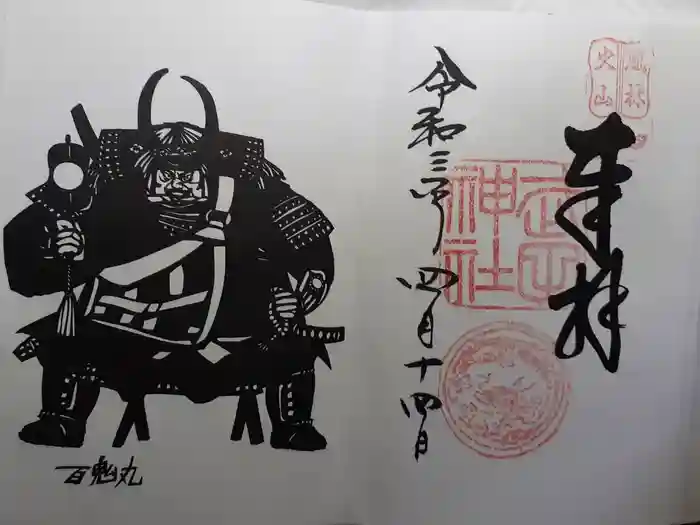 奉拝
風林
火山
武田
神社
令和三年四月十四日
百鬼丸